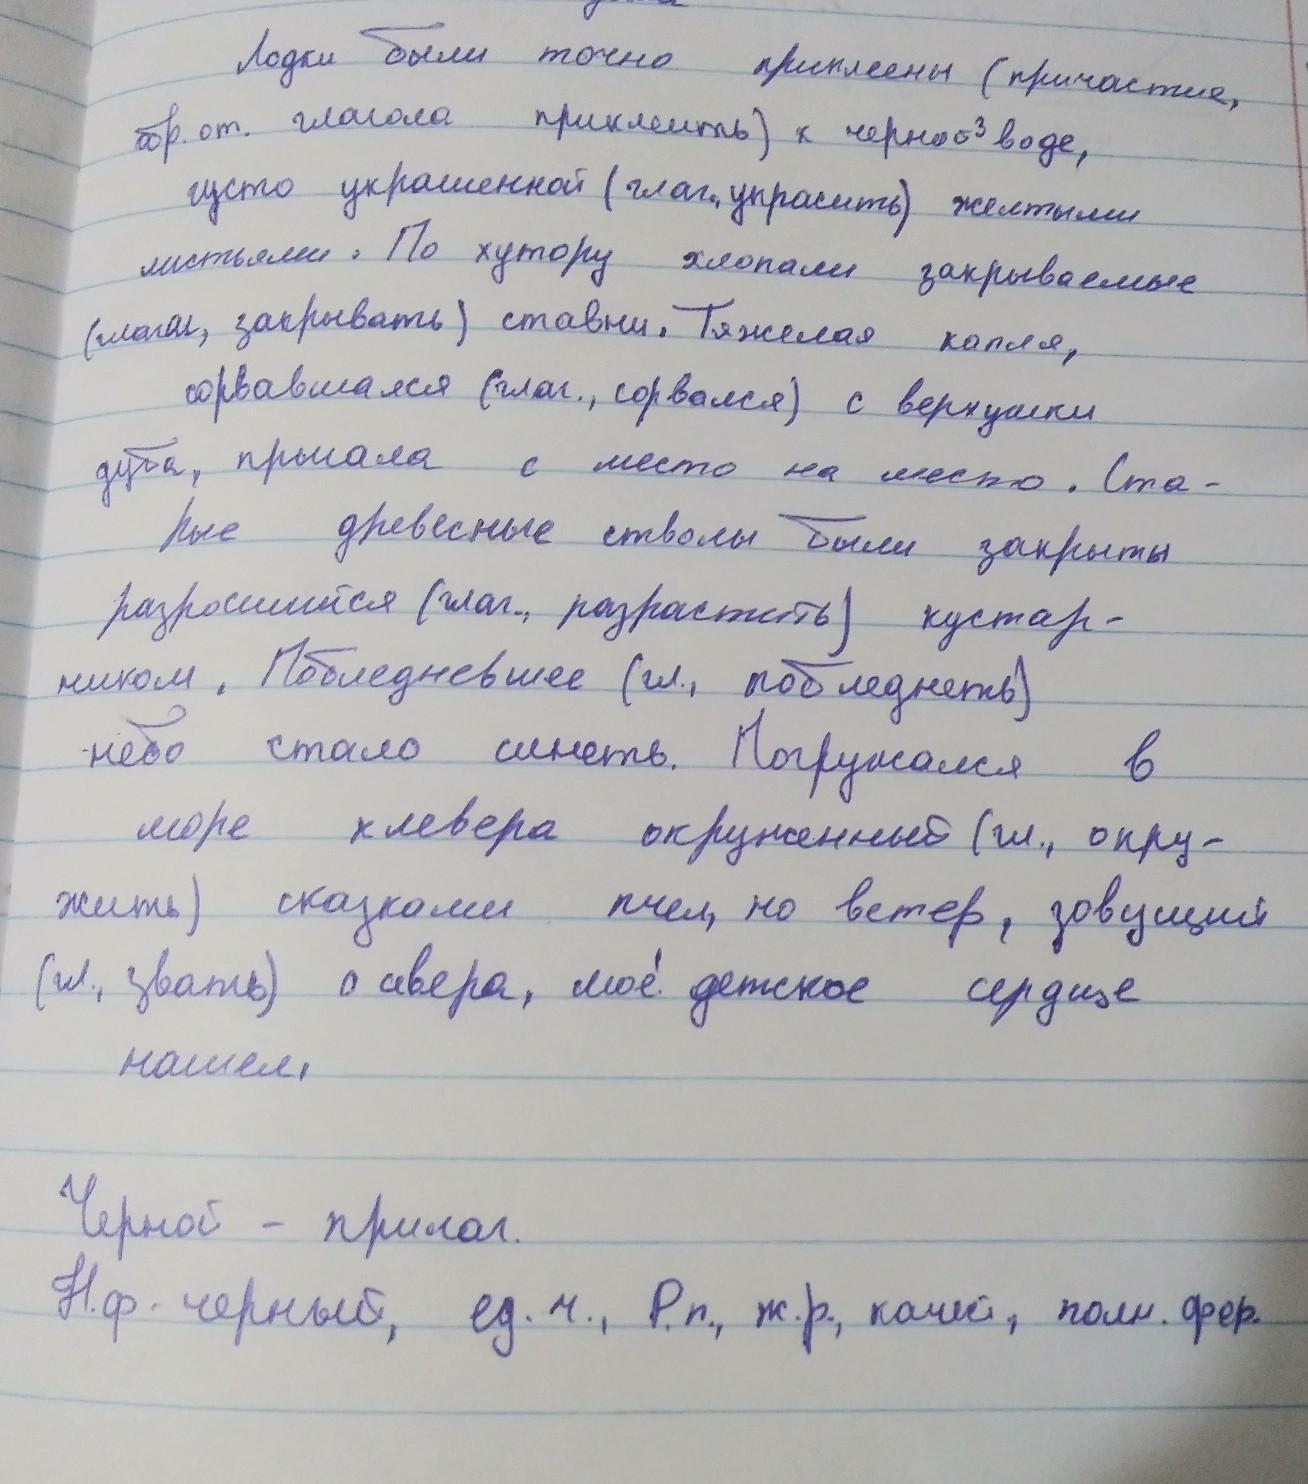 Лодки были точно приклеены (причастие,
обр. от. глагола приклеить) к черной³ воде,
густо украшенной (глаг., украсить) желтыми
листьями. По хутору хлопали закрываемые
(глагол, закрывать) ставни. Тяжелая капля,
сорвавшаяся (глаг., сорвался) с верхушки
дуба, прыгала с место на место. Ста-
рые древесные стволы были закрыты
разросшийся (глаг., разрастить) кустар-
ником. Побледневшее (гл., побледнеть)
небо стало синеть. Погружался в
море клевера окруженный (гл., окру-
жить) сказками пчел, но ветер, зовущий
(гл., звать) с севера, моё детское сердце
нашел.
Черной - прилаг.
Н.ф. - черный, ед. ч., Р.п., ж.р., качест, полн. фор.